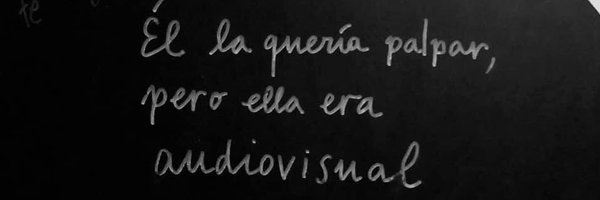 te
Él la quería palpar,
pero ella era
audiovisual